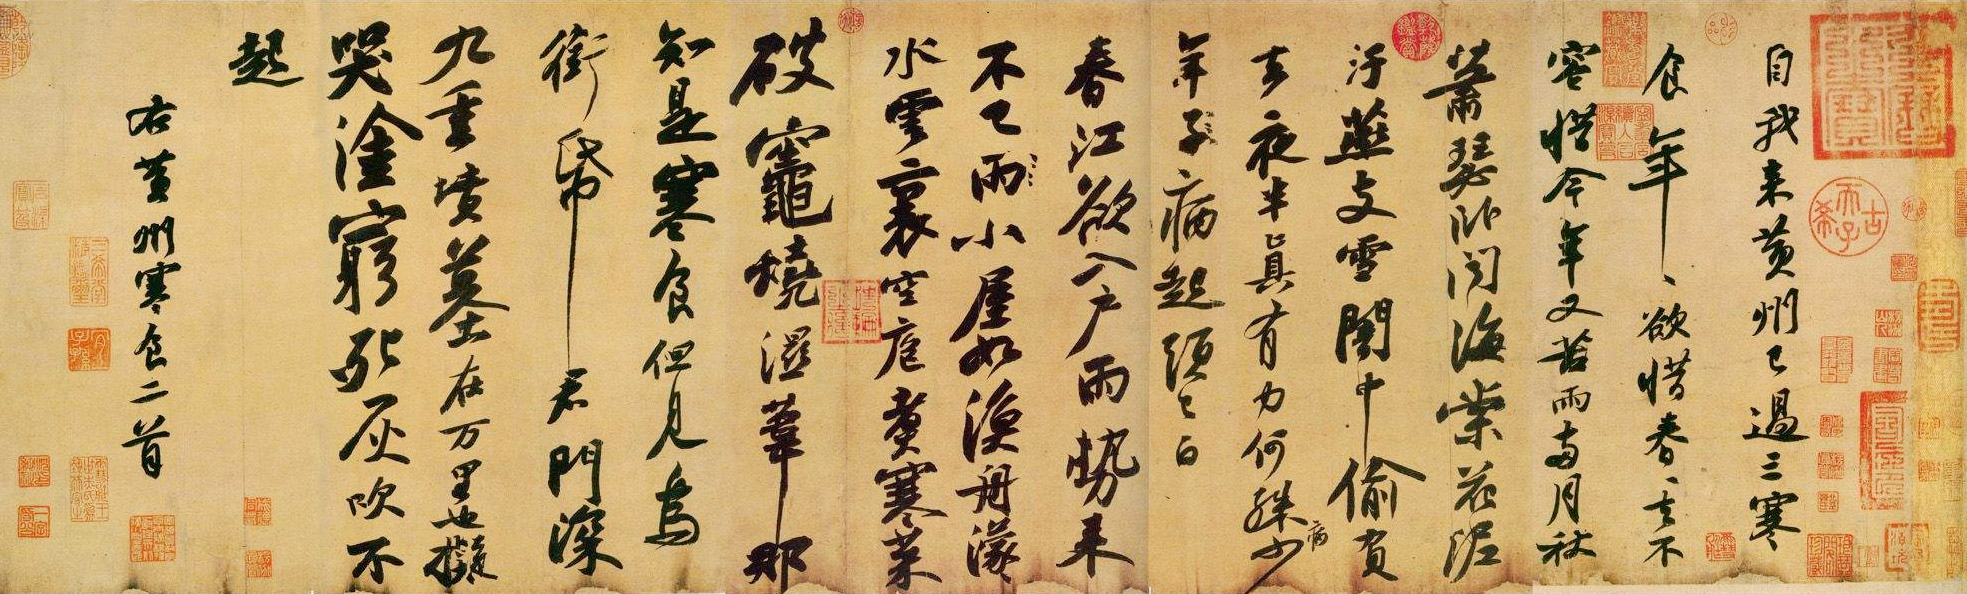 自我来黄州已過三寒
食年〻欲惜春〻去不
容惜今年又苦雨兩月秋
蕭瑟卧聞海棠花泥
汙燕支雪闇中偷負
去夜半真有力何殊少病
年子病起頭已白
春江欲入户雨勢来
不已雨小屋如漁舟濛〻
水雲裏空庖煑寒菜
破竈燒濕葦那
知是寒食但見烏
銜帋君門深
九重墳墓在万里也擬
哭塗窮死灰吹不
起
右黄州寒食二首
古希天子